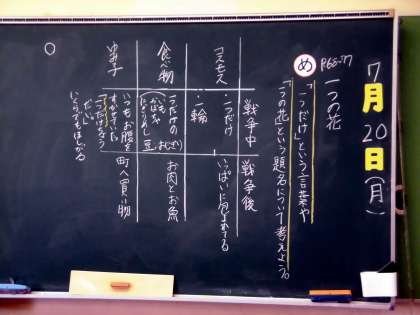 7月20日(月)
P68-77
一つの花
め
「一つだけ」という言葉や
「一つの花」という題名について考えよう。
戦争中
戦争後
コスモス
・一つだけ
・一輪
いっぱいに包まれてる
食べ物
一つだけの
おにぎり
いも
かぼちゃ
豆
お肉とお魚
ゆみ子
いつもお腹を
すかせていた
一つだけちょう
だい。
いくらでもほしがる
町へ買い物